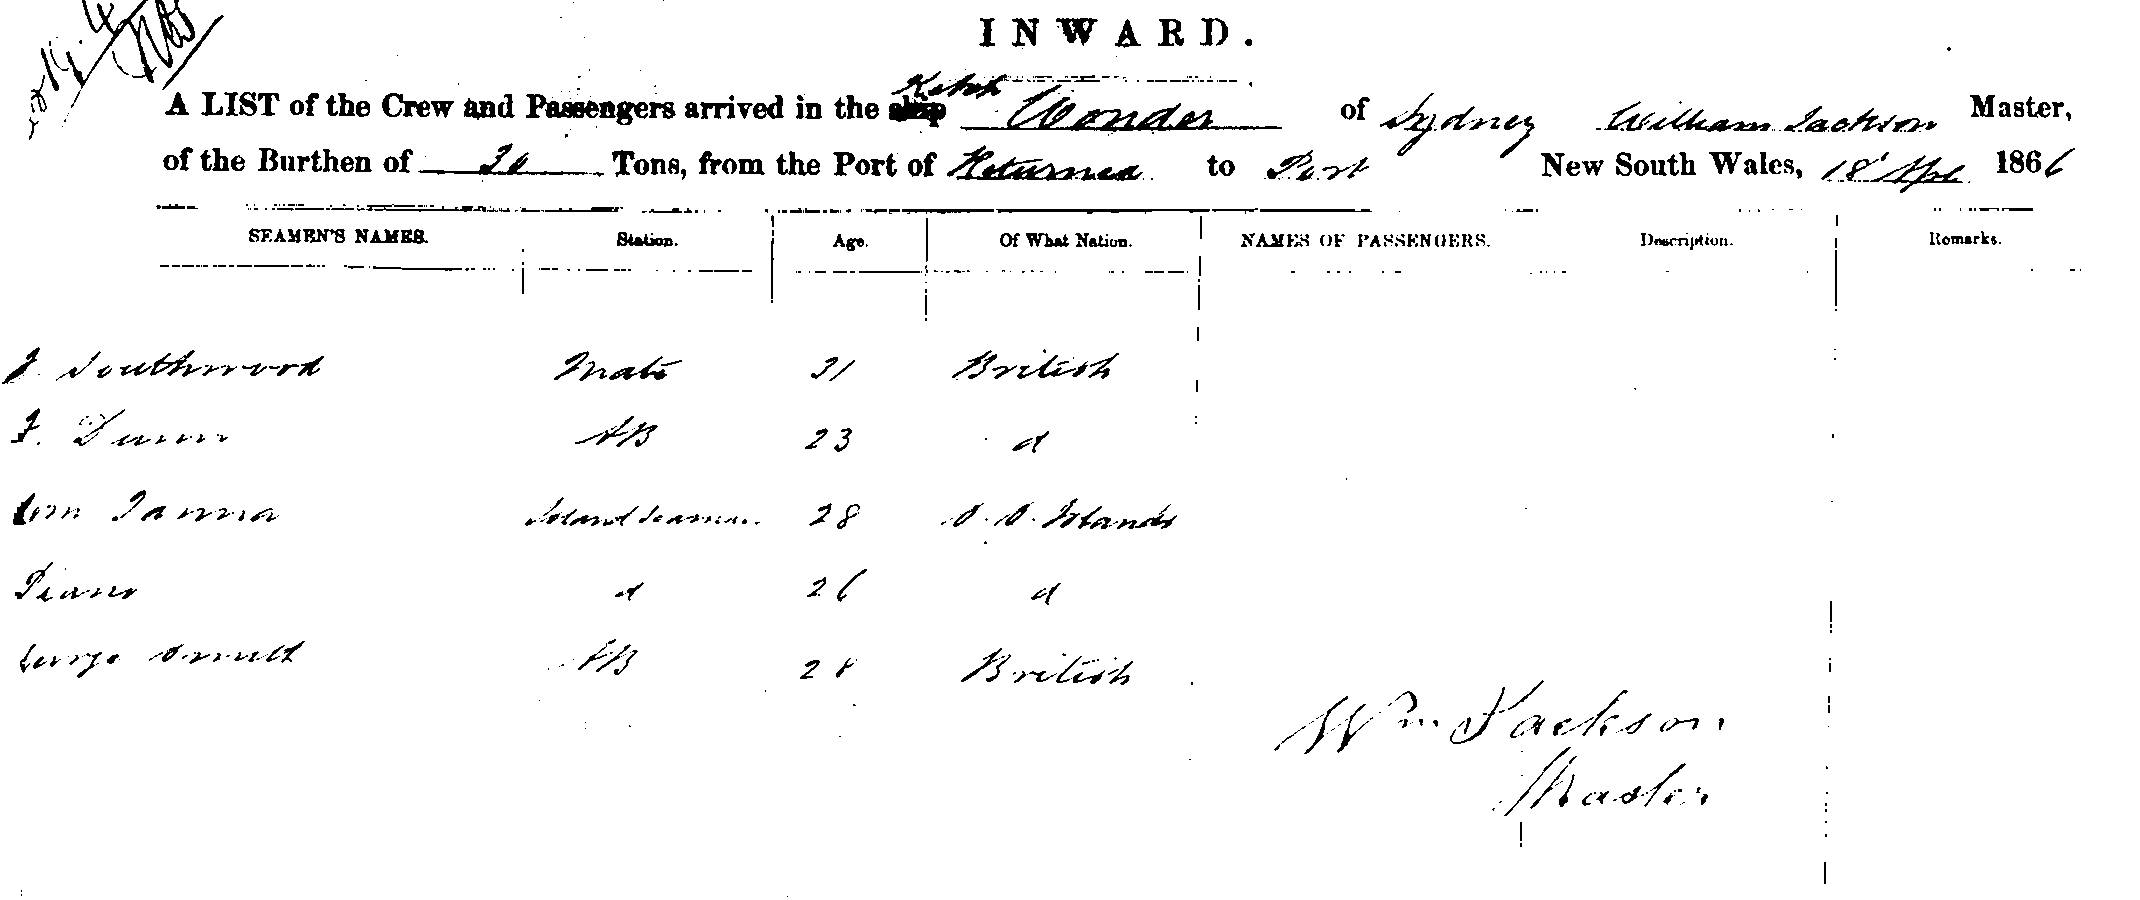 INWARD.
A LIST of the Crew and Passengers arrived in the ship Ketch Wonder of Sydney William Jackson Master,
of the Burthen of 30 Tons, from the Port of Returned to Port New South Wales, 18 Apl 1866
SEAMEN'S NAMES. Station. Age. Of What Nation. NAMES OF PASSENGERS. Description. Remarks.
J. Southwood Mate 31 British
J. Dunn AB 23 d
Tom Tanna Island Seaman 28 S. S. Islands
26 d
George AB 28 British
Wm Jackson
Master